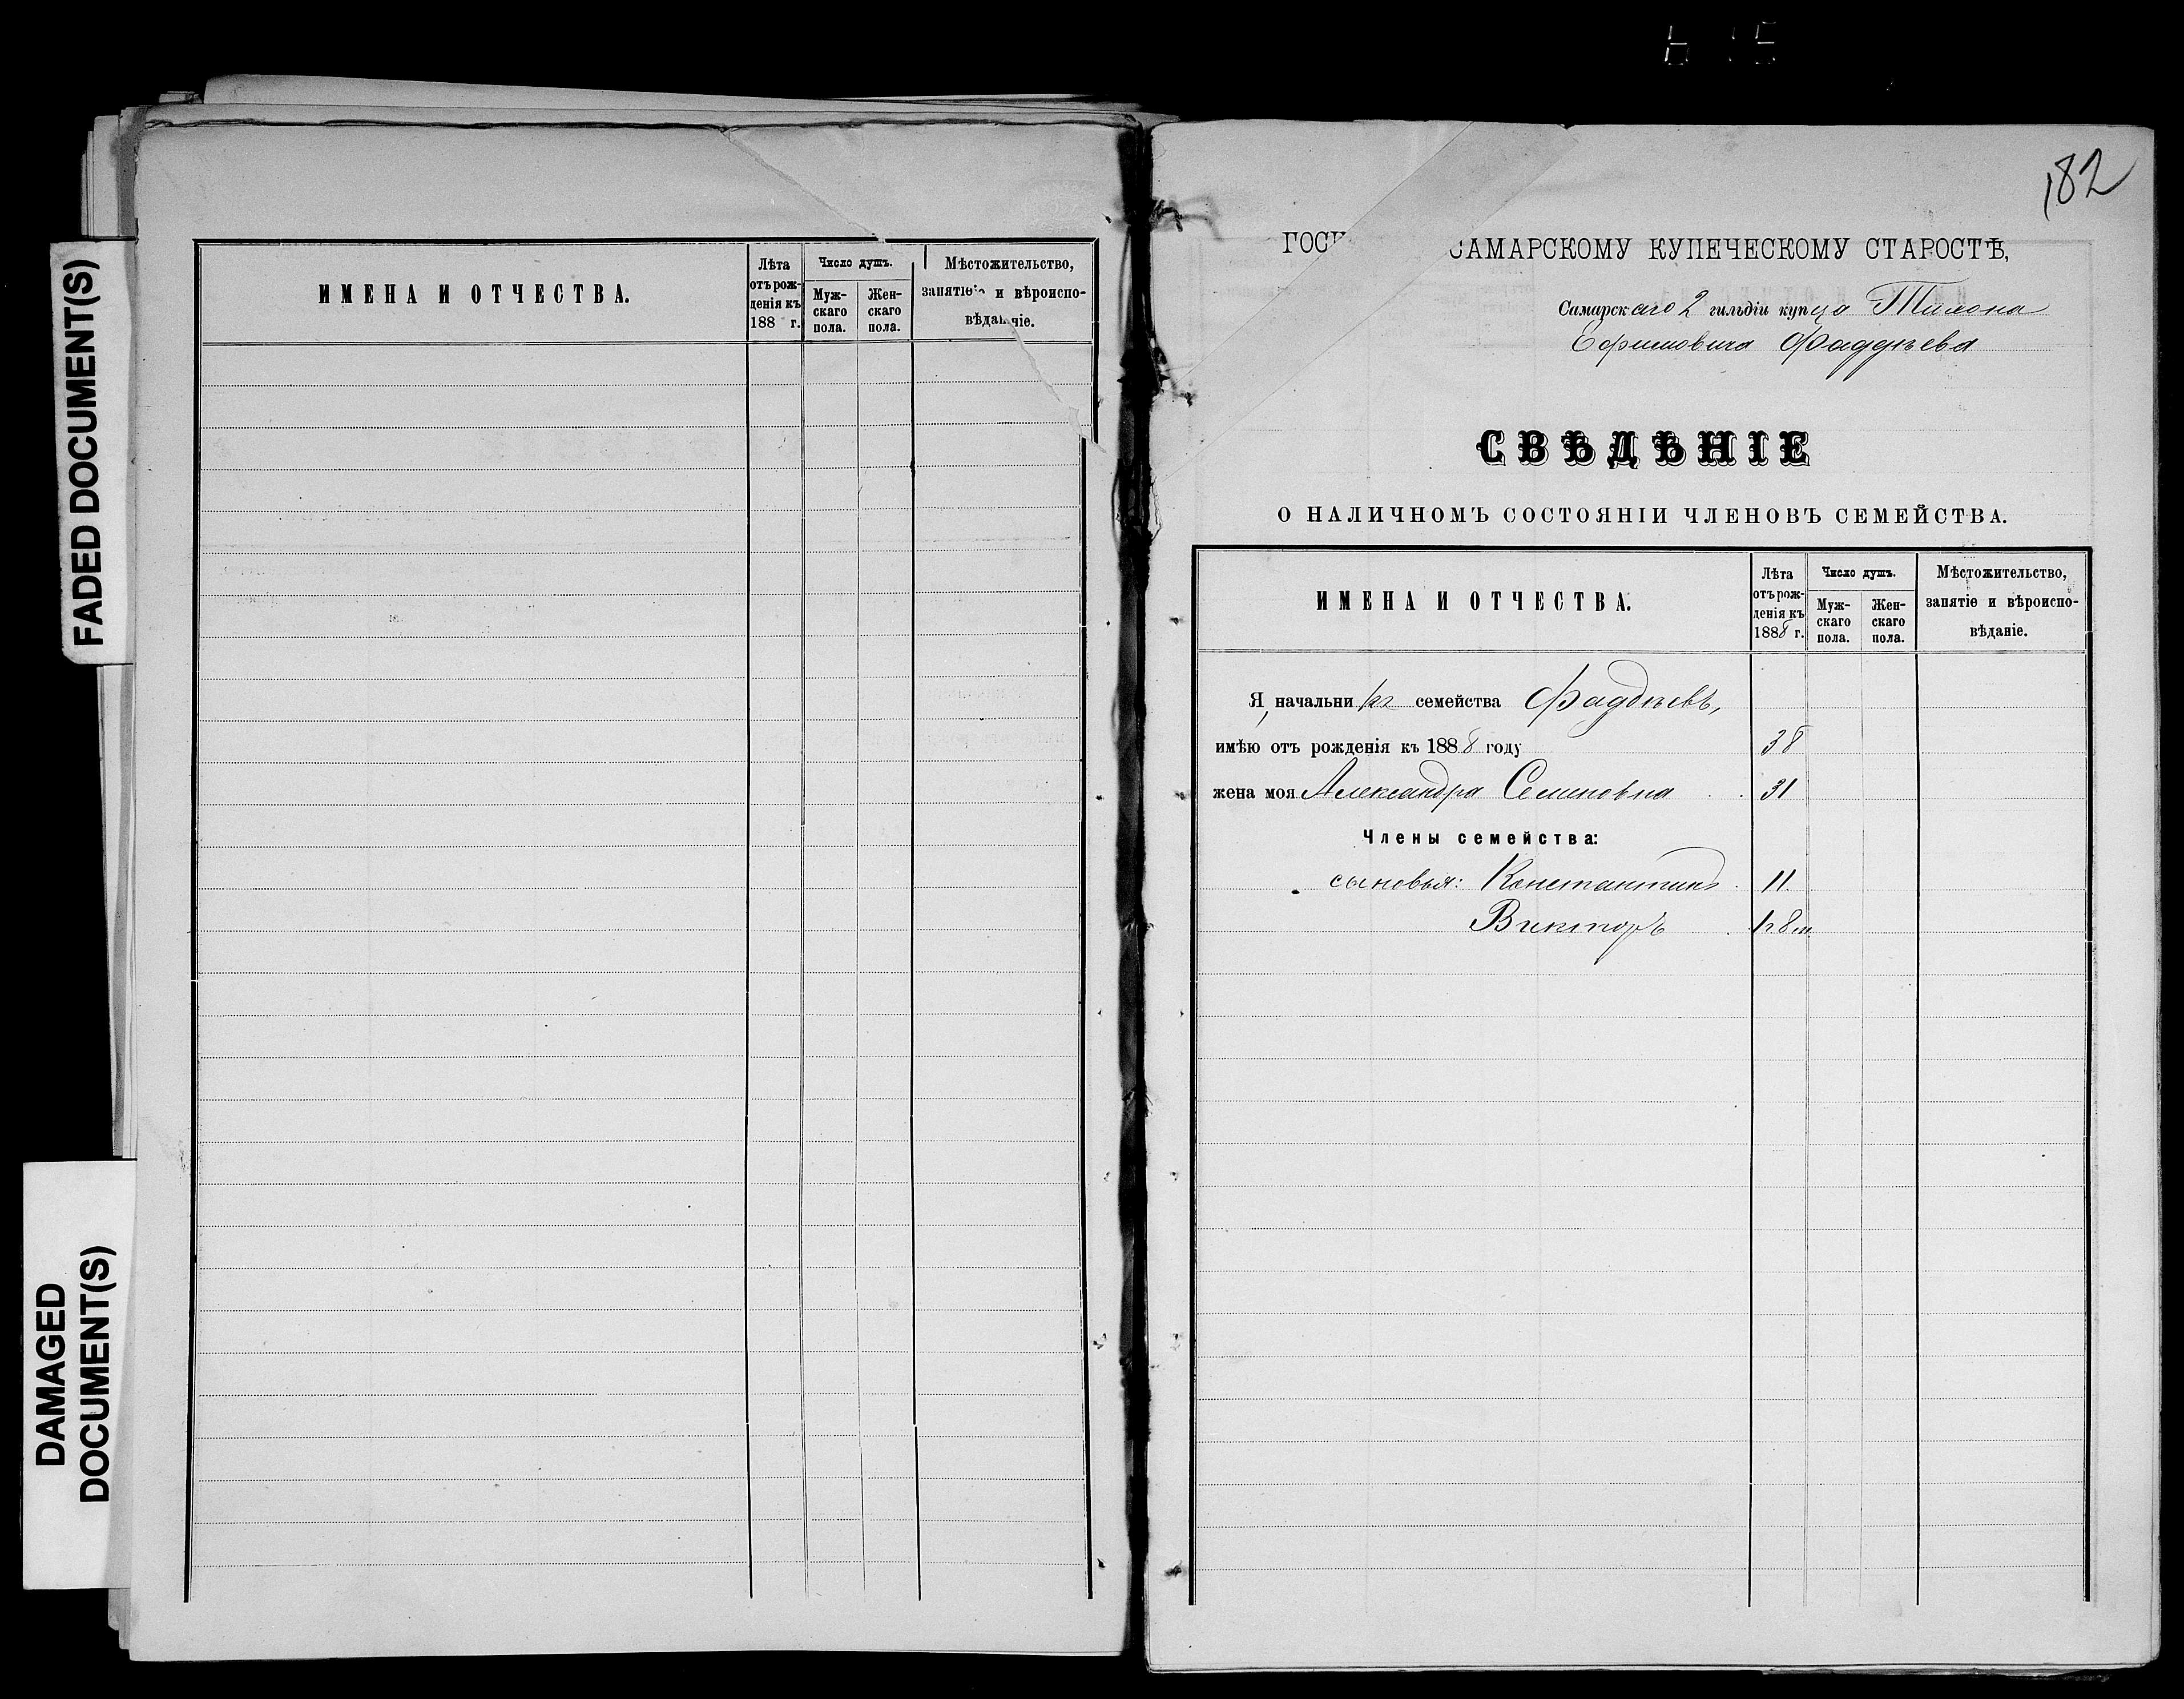 FADED DOCUMENT(S)
DAMAGED
DOCUMENT(S)
ИМЕНА И ОТЧЕСТВА.
Лѣта
отъ рож-
денія къ
188 г.
Число душъ.
Муж-
скаго
пола.
Жен-
скаго
пола.
Мѣстожительство,
занятіе и вѣроиспо-
вѣданіе.
182
САМАРСКОМУ КУПЕЧЕСКОМУ СТАРОСТѢ,
Самарскаго 2 гильдіи купца
Ефимовича Фаддѣева
СВѢДѢНІЕ
О НАЛИЧНОМЪ СОСТОЯНІИ ЧЛЕНОВЪ СЕМЕЙСТВА.
ИМЕНА И ОТЧЕСТВА.
Лѣта
отъ рож-
денія къ
1888 г.
Число душъ.
Муж-
скаго
пола.
Жен-
скаго
пола.
Мѣстожительство,
занятіе и вѣроиспо-
вѣданіе.
Я, начальникъ семейства Фаддѣевъ,
имѣю отъ рожденія къ 1888 году 38
жена моя Александра Семеновна 31
Члены семейства:
сыновья: Константинъ 11
Викторъ 1 г 8 м